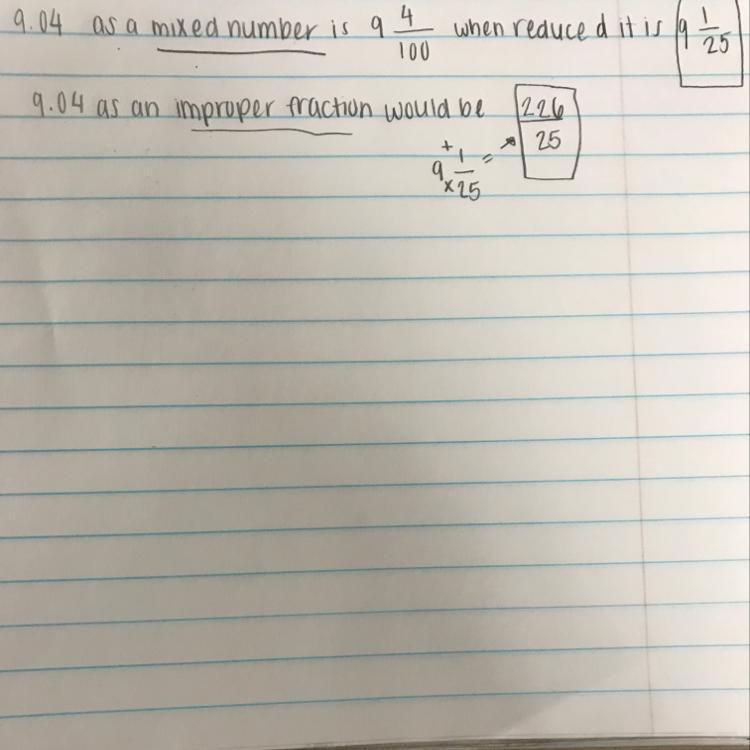 9.04 as a mixed number is 9 4/100 when reduced it is 9 1/25
9.04 as an improper fraction would be 226/25
9 + 1 =
x 25